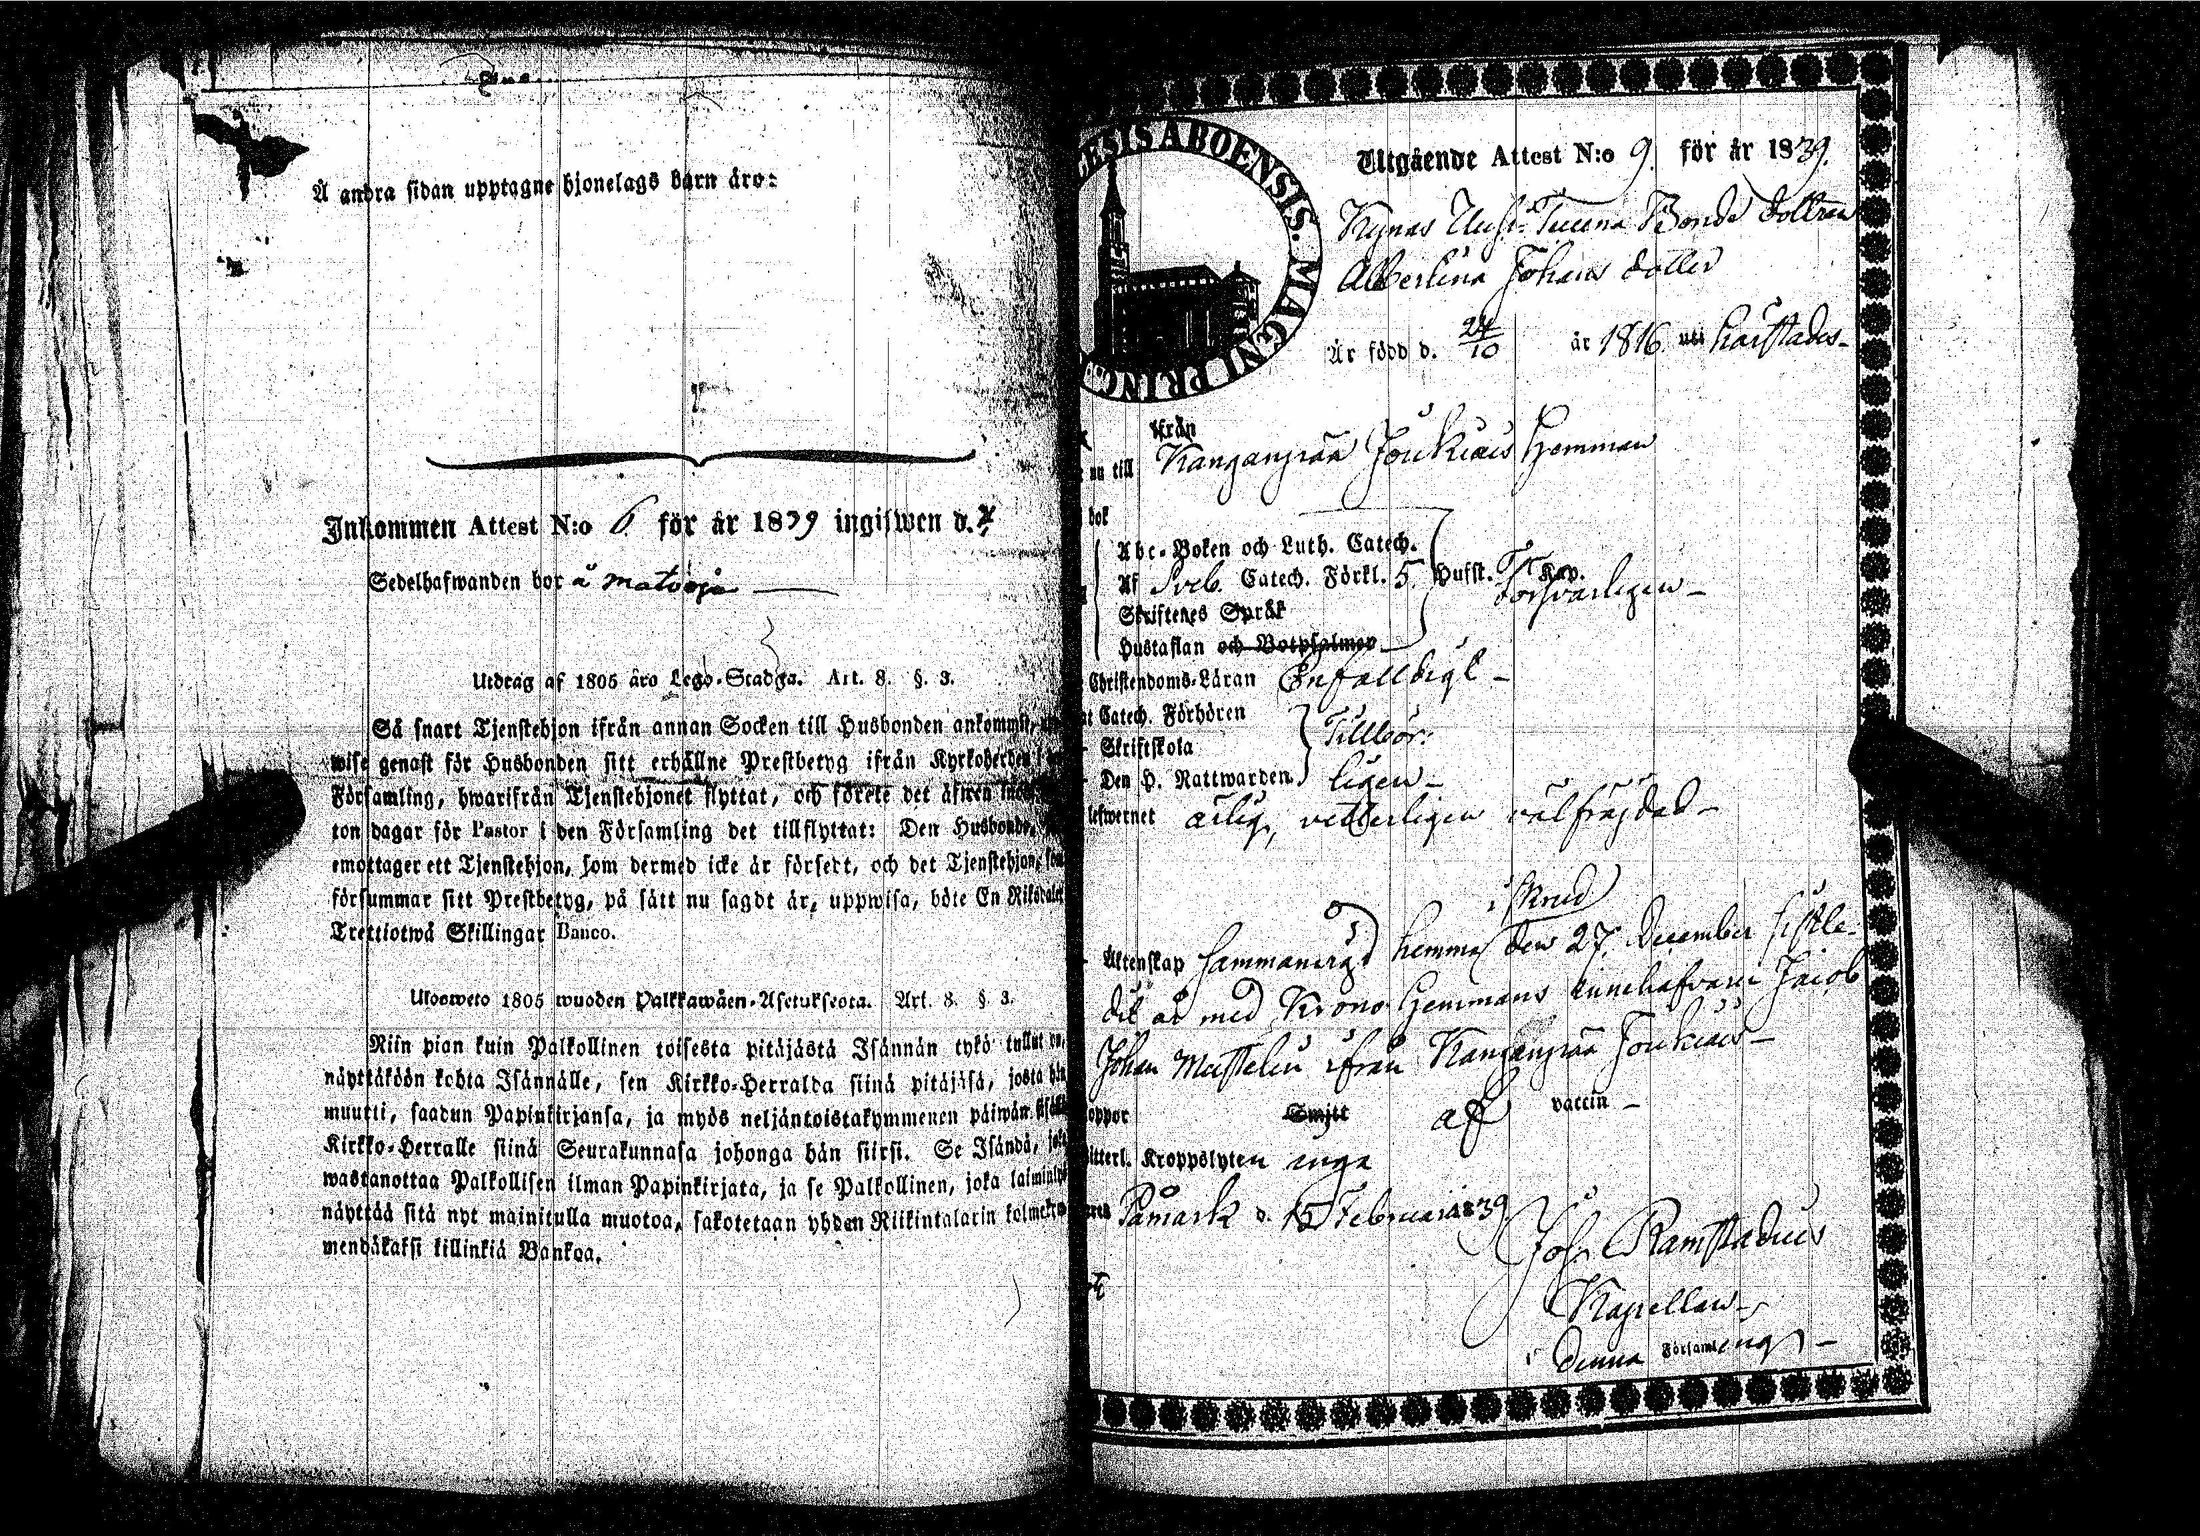 Å andra sidan upptagne hjonelags barn äro:
Inkommen Attest N:o 6 för år 1839 ingifwen d.
Sedelhafwanden bor å
Utdrag af 1805 åro Lego-Stadga. Art. 8. §. 3.
Så snart Tjenstehjon ifrån annan Socken till Husbonden ankommit,
wise genast för Husbonden sitt erhållne Prestbetyg ifrån Kyrkoherden i
Församling, hwarifrån Tjenstehjonet flyttat, och förete det äfwen
ton dagar för Pastor i den Församling det tillflyttat: Den Husbonde,
emottager ett Tjenstehjon, som dermed icke är försedt, och det Tjenstehjon, som
försummar sitt Prestbetyg, på sätt nu sagdt är, uppwisa, böte En Riksdaler
Trettiotwå Skillingar Banco.
Ulosweto 1805 wuoden Palkkawäen-Asetuksesta. Art. 8. §. 3.
Niin pian kuin Palkollinen toisesta pitäjästä Isännän tykö tullut on,
näyttäköön kohta Isännälle, sen Kirkko-Herralda siinä pitäjäsä, josta hän
muutti, saadun Papinkirjansa, ja myös neljäntoistakymmenen päiwän sisällä
Kirkko-Herralle siinä Seurakunnasa johonga hän siirsi. Se Isändä, joka
wastanottaa Palkollisen ilman Papinkirjata, ja se Palkollinen, joka laiminlyö
näyttää sitä nyt mainitulla muotoa, sakotetaan yhden Riikintalarin kolmekym-
mendäkaksi killinkiä Bankoa.
ESIS ABOENSIS. MAGNI PRINC
Utgående Attest N:o 9. för år 1839.
Bonde dottren
Albertina Johans dotter
Är född d. 24/10 år 1816 uti
ifrån
nu till Kanganpää Jonkiais Hemman
bok
Abc-Boken och Luth. Catech.
Af Sveb. Catech. Förkl. 5 Hufst. Kap.
Försvarligen
Skriftenes Språk
Hustaflan och Botpsalmer
Christendoms-Läran Enfalldigt
Catech. Förhören
Skriftskola Tillbör-
Den H. Nattwarden ligen
lefwernet ärlig, vetterligen välfräjdad
Äktenskap sammanvigd hemma den 27. December sistle-
dit år med Krono Hemmans innehafvare Jacob
Johan Mattelin ifrån Kanganpää Jonkiais
koppor Smitt af vaccin
witterl. Kroppslyten inga
Påmark d. 15 Februari 1839
Joh. Ramstadius
Kapellan
i denna Församling